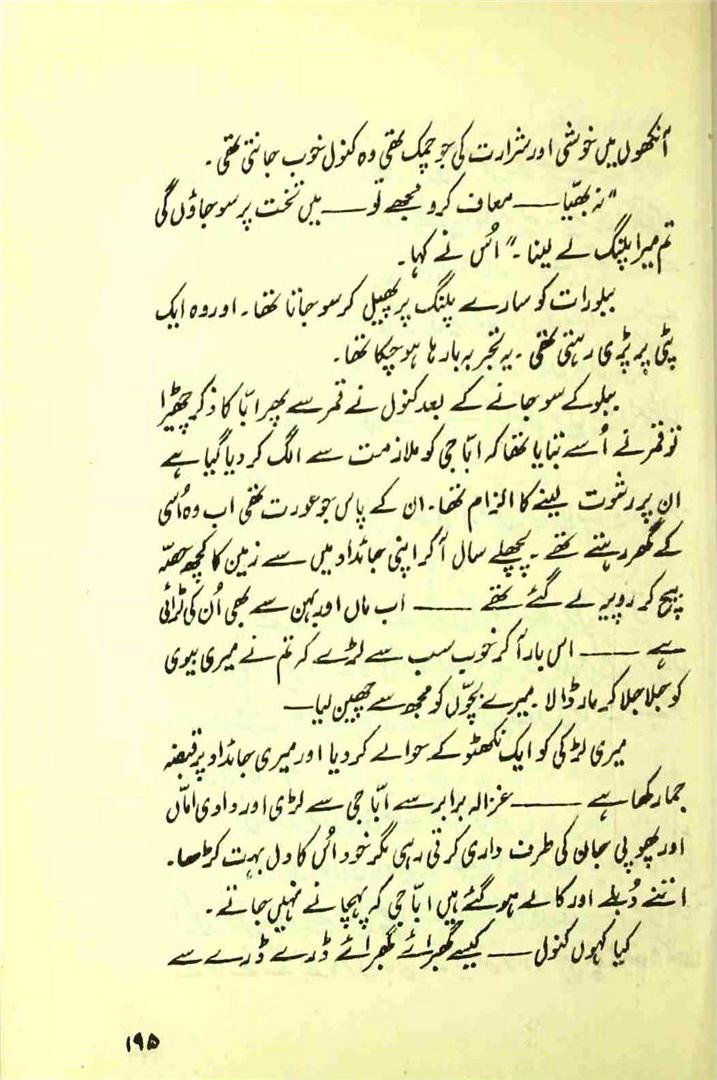 آنکھوں میں خوشی اور شرارت کی جو چمک تھی وہ کنول خوب جانتی تھی۔
"نہ بھیّا —— معاف کرو مجھے تو —— میں تخت پر سو جاؤں گی
تم میرا پلنگ لے لینا۔" اُس نے کہا۔
ببلو رات کو سارے پلنگ پر پھیل کر سو جاتا تھا۔ اور وہ ایک
پٹی پر پڑی رہتی تھی۔ یہ تجربہ بارہا ہو چکا تھا۔
ببلو کے سو جانے کے بعد کنول نے قمر سے پھر ابّا کا ذکر چھیڑا
تو قمر نے اُسے بتایا تھا کہ ابّا جی کو ملازمت سے الگ کر دیا گیا ہے
ان پر رشوت لینے کا الزام تھا۔ ان کے پاس جو عورت تھی اب وہ اُسی
کے گھر رہتے تھے۔ پچھلے سال آ کر اپنی جائداد میں سے زمین کا کچھ حصّہ
بیچ کر روپیہ لے گئے تھے —— اب ماں اور بہن سے بھی اُن کی لڑائی
ہے —— اس بار آ کر خوب سب سے لڑے کہ تم نے میری بیوی
کو جلا جلا کر مار ڈالا۔ میرے بچّوں کو مجھ سے چھین لیا—
میری لڑکی کو ایک نکھٹو کے حوالے کر دیا اور میری جائداد پر قبضہ
جما رکھا ہے —— غزالہ برابر سے ابّا جی سے لڑی اور دادی امّاں
اور پھوپی جان کی طرف داری کرتی رہی مگر خود اُس کا دل بہت کڑھا۔
اتنے دُبلے اور کالے ہو گئے ہیں ابّا جی کہ پہچانے نہیں جاتے۔
کیا کہوں کنول —— کیسے گھبرائے گھبرائے ڈرے ڈرے سے
۱۹۵